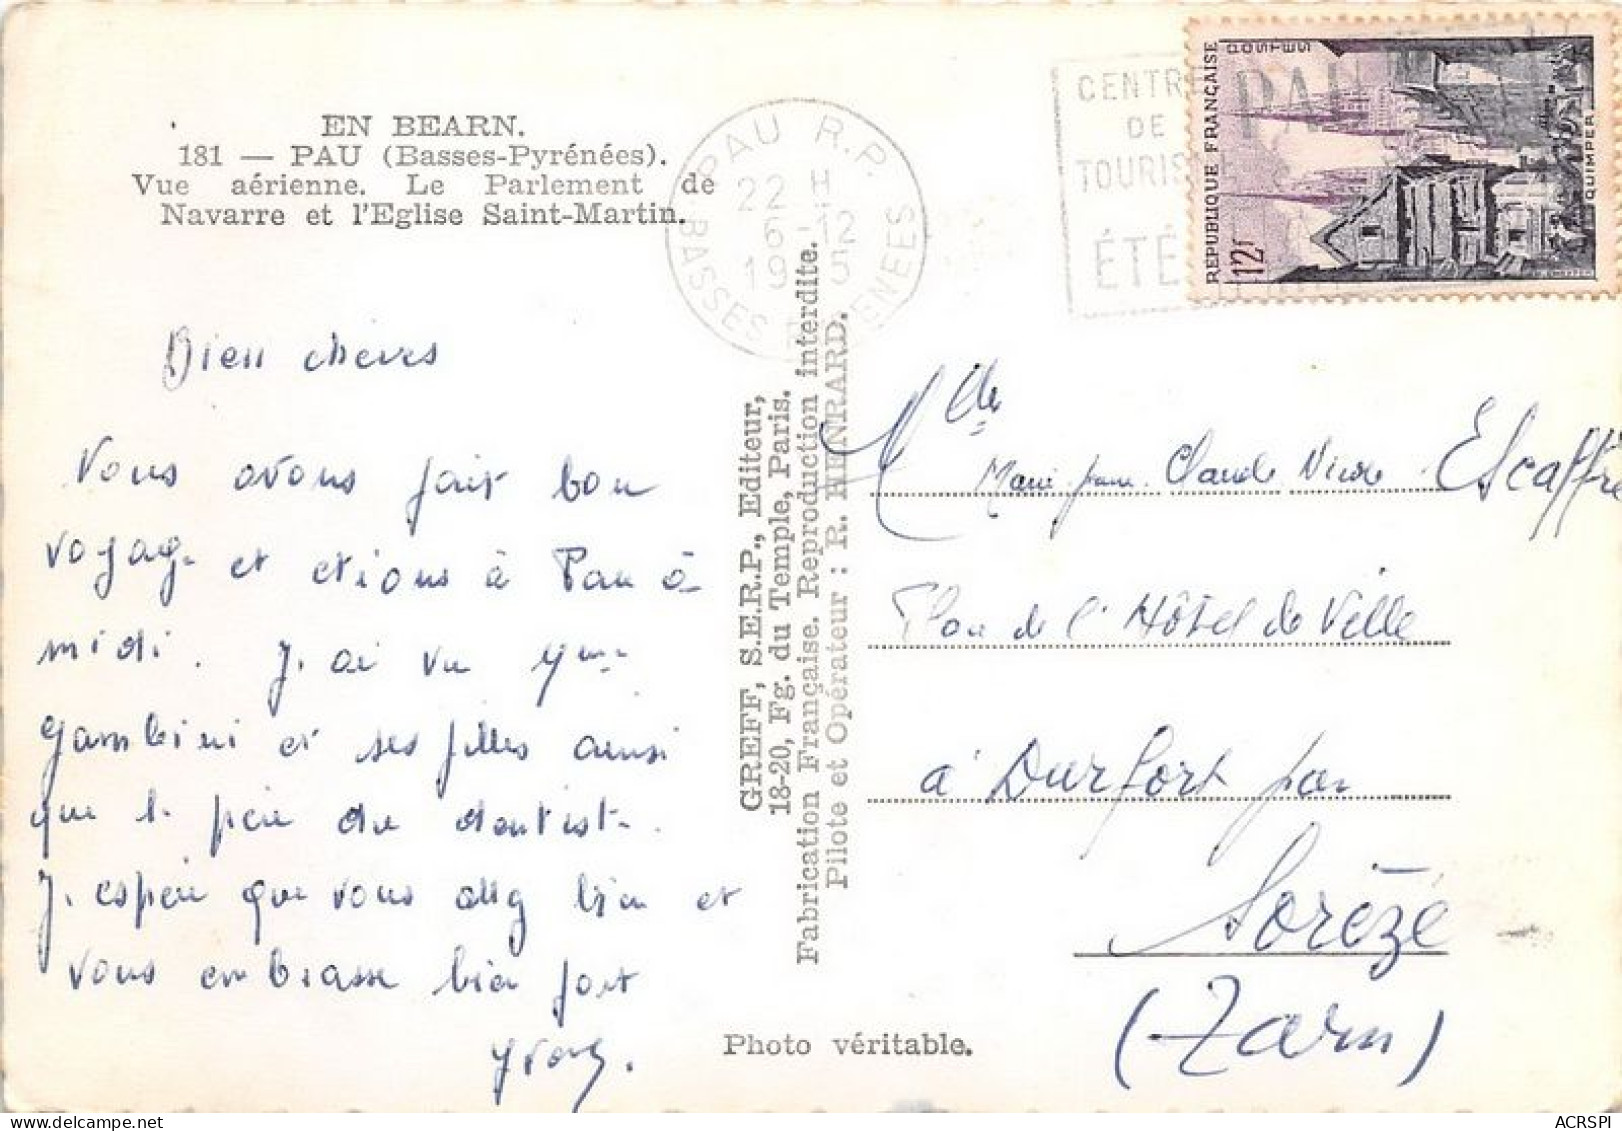 EN BEARN.
181 — PAU (Basses-Pyrénées).
Vue aérienne. Le Parlement de
Navarre et l'Eglise Saint-Martin.
PAU R.P.
22 H
6 - 12
19 5
BASSES PYRENEES
CENTRE
DE
TOURISME
ÉTÉ
PAU
REPUBLIQUE FRANÇAISE
POSTES
12F
QUIMPER
Bien chères
Nous avons fait bon
voyage et etions à Pau à
midi. J'ai vu Mme
Gambini et ses filles ainsi
que le père du dentiste.
J'espère que vous allez bien et
vous embrasse bien fort
GREFF, S.E.R.P., Editeur,
18-20, Fg. du Temple, Paris.
Fabrication Française. Reproduction interdite.
Pilote et Opérateur : R. HENRARD.
Photo véritable.
Mlles
Marie Jeanne Claude Nicole Escaffre
Place de l'Hôtel de Ville
à Durfort par
Sorèze
(Tarn)
ACRSPI